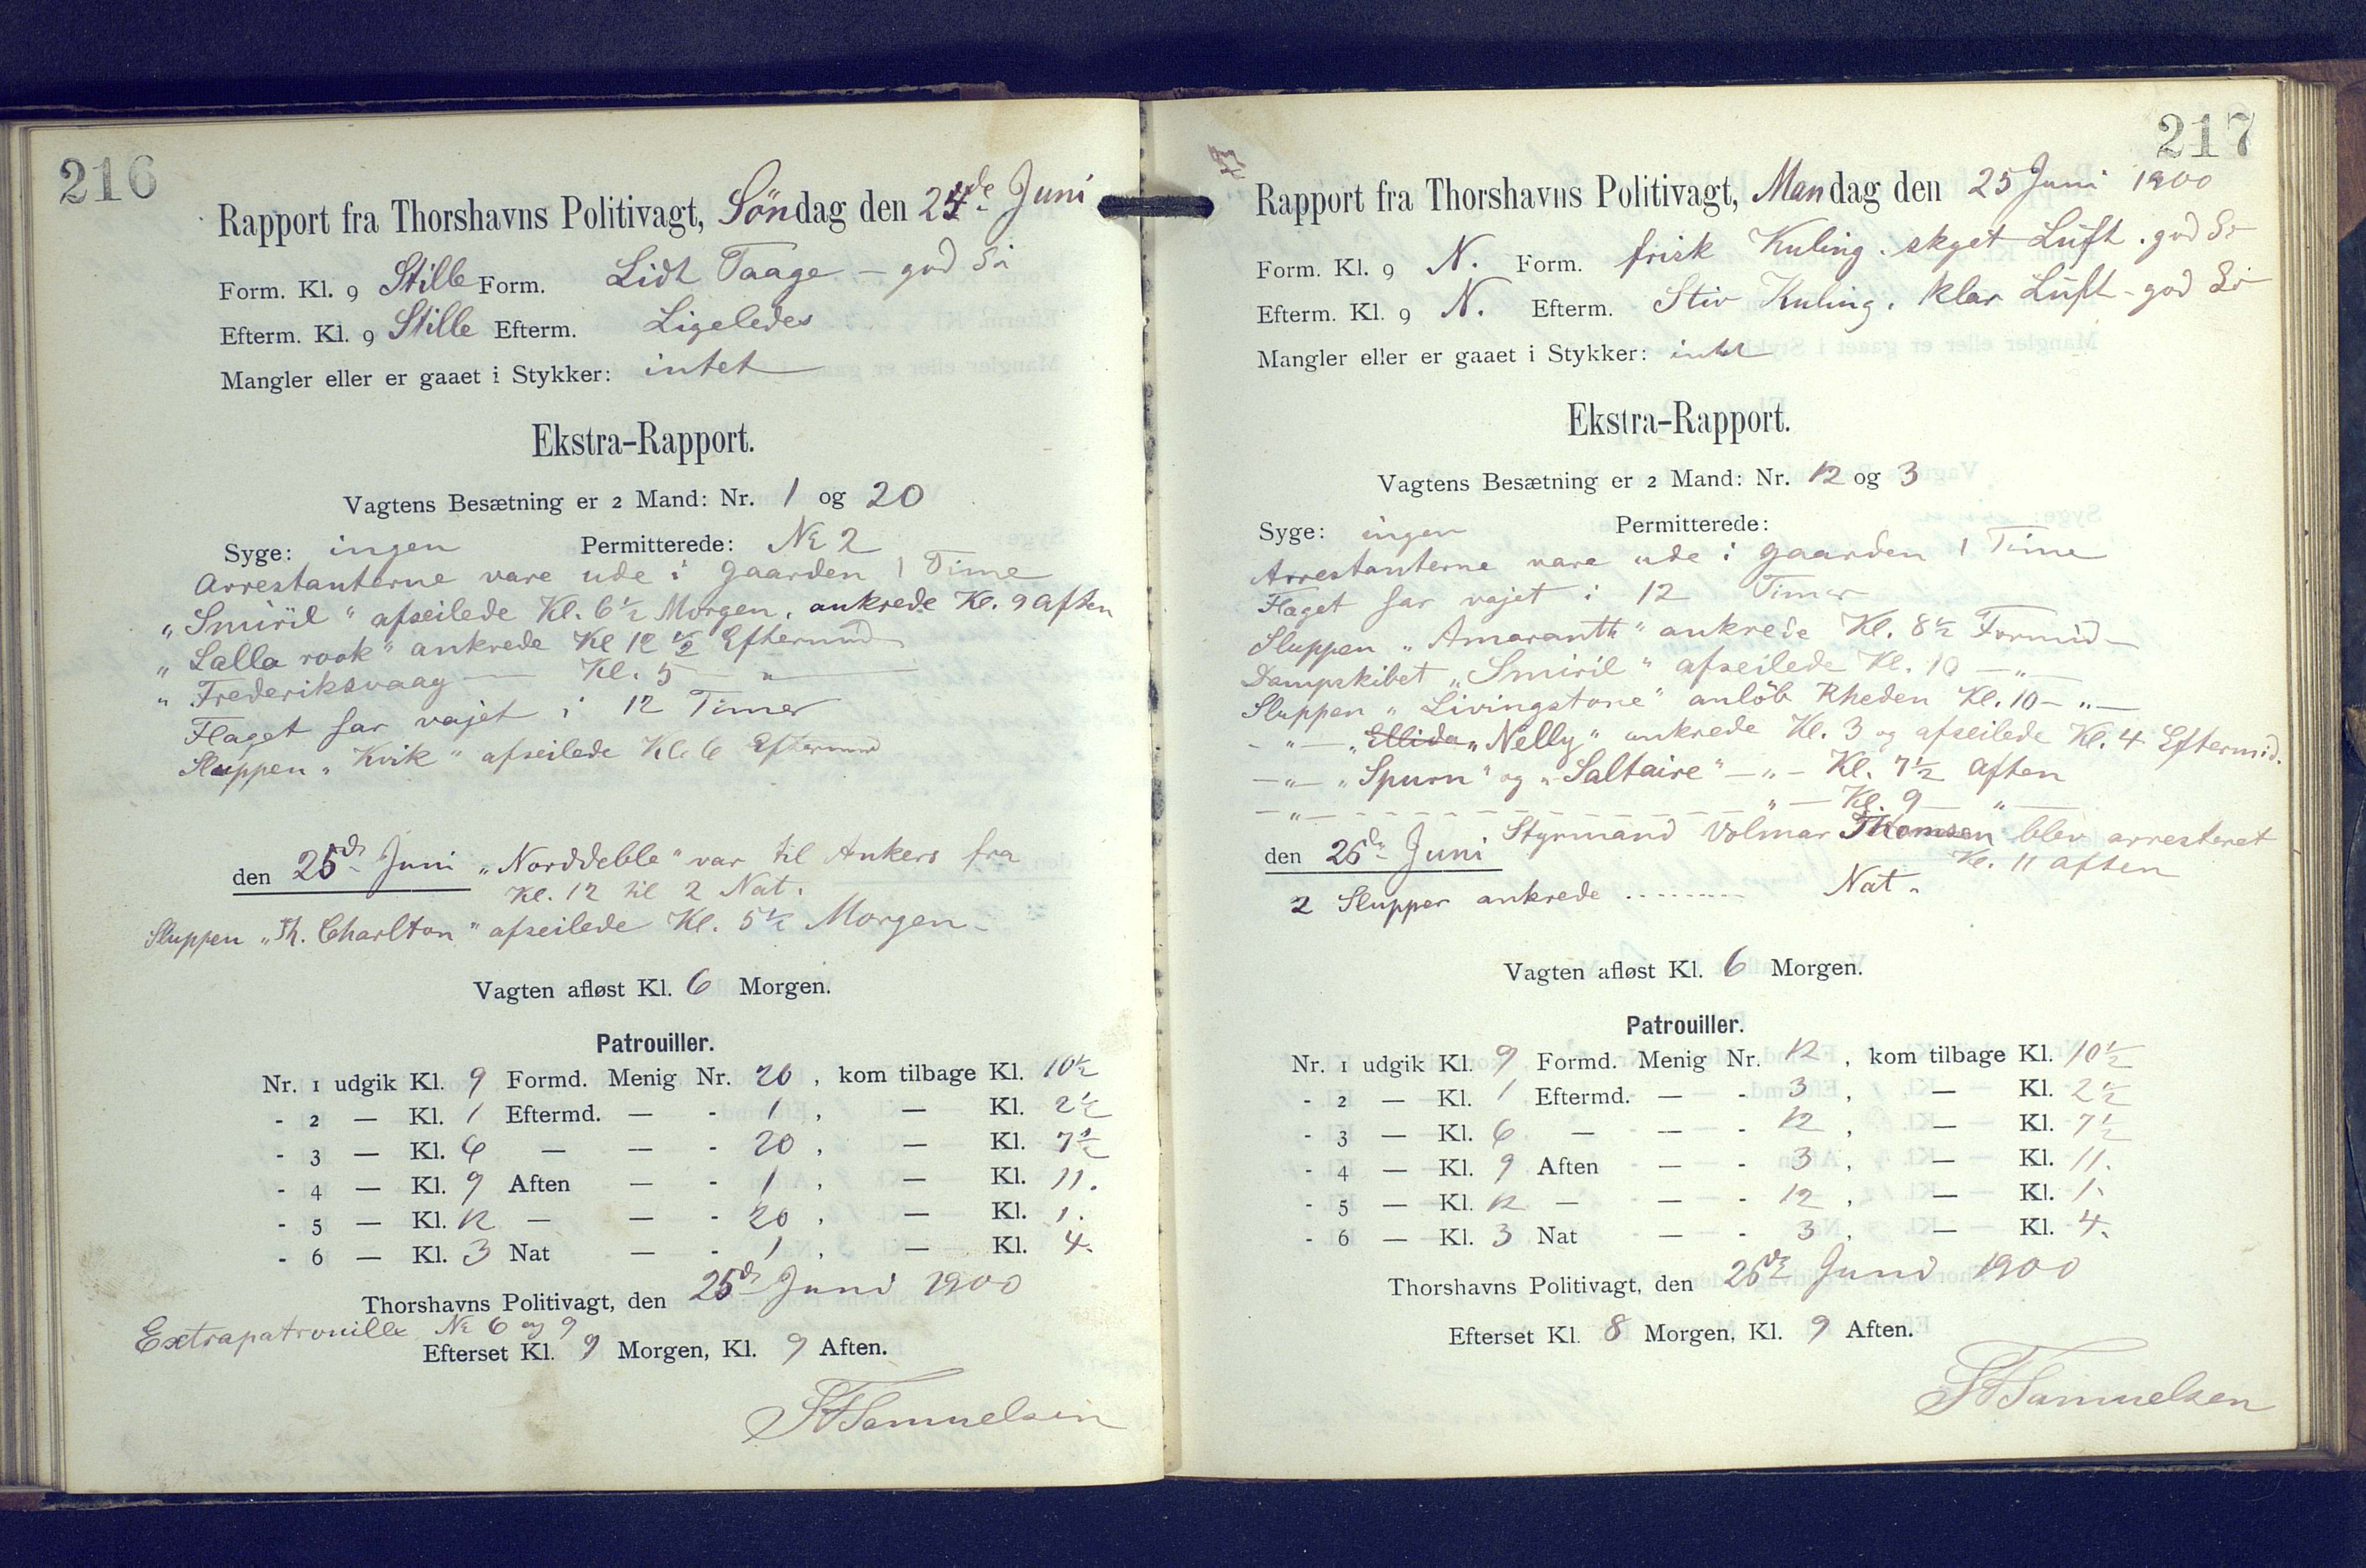 216
Rapport fra Thorshavns Politivagt, Söndag den 24de Juni
Form. Kl. 9 Stille Form. Lidt Taage - god Sö
Efterm. Kl. 9 Stille Efterm. Ligeledes
Mangler eller er gaaet i Stykker: intet
Ekstra-Rapport.
Vagtens Besætning er 2 Mand: Nr. 1 og 20
Syge: ingen Permitterede: No 2
Arrestanterne vare ude i Gaarden 1 Time
„Smiril" afseilede Kl. 6 1/2 Morgen, ankrede Kl. 9 Aften
„Lalla rook" ankrede Kl 12 1/2 Eftermid
„Frederiksvaag — Kl. 5 — „ —
Flaget har vajet i 12 Timer
Sluppen „Kvik" afseilede Kl. 6 Eftermid
den 25de Juni „Norddeble" var til Ankers fra
Kl. 12 til 2 Nat.
Sluppen „Th. Charlton" afseilede Kl. 5 1/2 Morgen -
Vagten afløst Kl. 6 Morgen.
Patrouiller.
Nr. 1 udgik Kl. 9 Formd. Menig Nr. 20, kom tilbage Kl. 10 1/2
- 2 — Kl. 1 Eftermd. — - 1, — Kl. 2 1/2
- 3 — Kl. 6 — — - 20, — Kl. 7 1/2
- 4 — Kl. 9 Aften — - 1, — Kl. 11.
- 5 — Kl. 12 — — - 20, — Kl. 1.
- 6 — Kl. 3 Nat — - 1, — Kl. 4.
Thorshavns Politivagt, den 25de Juni 1900
Extrapatrouille No 6 og 9
Efterset Kl. 9 Morgen, Kl. 9 Aften.
Samuelsen
217
Rapport fra Thorshavns Politivagt, Mandag den 25 Juni 1900
Form. Kl. 9 N. Form. frisk Kuling. skyet Luft. god Sö
Efterm. Kl. 9 N. Efterm. Stiv Kuling. klar Luft - god Sö
Mangler eller er gaaet i Stykker: intet
Ekstra-Rapport.
Vagtens Besætning er 2 Mand: Nr. 12 og 3
Syge: ingen Permitterede:
Arrestanterne vare ude i Gaarden 1 Time
Flaget har vajet i 12 Timer
Sluppen „Amaranth" ankrede Kl. 8 1/2 Formid -
Dampskibet „Smiril" afseilede Kl. 10 — „ —
Sluppen „Livingstone" anlöb Rheden Kl. 10 - „ -
- „ - „Ellida „Nelly" ankrede Kl. 3 og afseilede Kl. 4 Eftermid.
- „ - „Spurn" og „Saltaire" - „ - Kl. 7 1/2 Aften
- „ - - - - - - - - - „ - Kl. 9 - „ -
Styrmand Volmar Thomsen blev arresteret
den 26de Juni Kl. 11 Aften
2 Slupper ankrede ......... Nat.
Vagten afløst Kl. 6 Morgen.
Patrouiller.
Nr. 1 udgik Kl. 9 Formd. Menig Nr. 12, kom tilbage Kl. 10 1/2
- 2 — Kl. 1 Eftermd. — - 3, — Kl. 2 1/2
- 3 — Kl. 6 — — - 12, — Kl. 7 1/2
- 4 — Kl. 9 Aften — - 3, — Kl. 11.
- 5 — Kl. 12 — — - 12, — Kl. 1.
- 6 — Kl. 3 Nat — - 3, — Kl. 4.
Thorshavns Politivagt, den 26de Juni 1900
Efterset Kl. 8 Morgen, Kl. 9 Aften.
Samuelsen